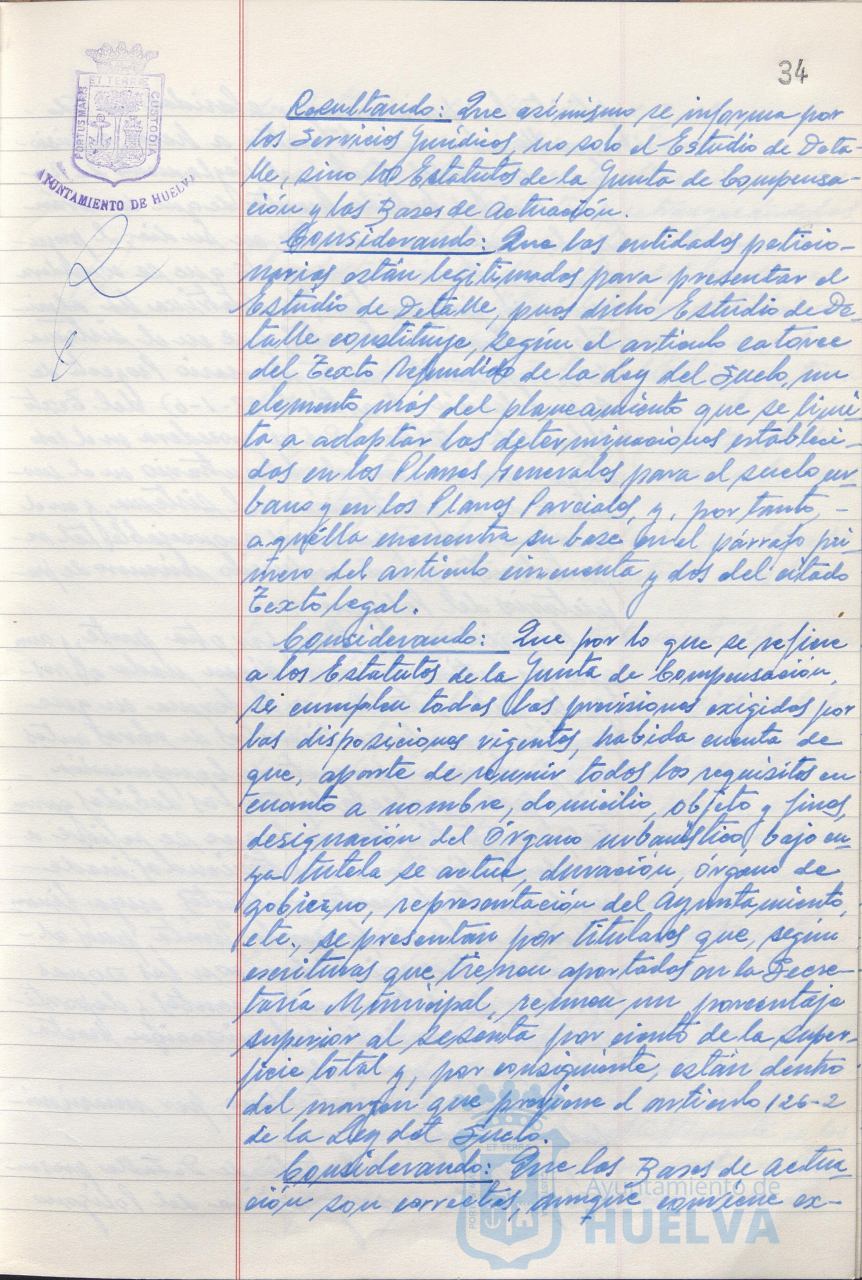 34
ET TERRAE
PORTUS MARIS
CUSTODIA
AYUNTAMIENTO DE HUELVA
Resultando: Que asimismo se informa por
los Servicios Jurídicos, no solo el Estudio de Deta-
lle, sino los Estatutos de la Junta de Compensa-
ción y las Bases de Actuación.
Considerando: Que las entidades peticio-
narias están legitimadas para presentar el
Estudio de Detalle, pues dicho Estudio de De-
talle constituye, según el artículo catorce
del Texto Refundido de la Ley del Suelo, un
elemento más del planeamiento que se limi-
ta a adaptar las determinaciones estableci-
das en los Planes Generales para el suelo ur-
bano y en los Planes Parciales, y, por tanto, -
aquélla encuentra su base en el párrafo pri-
mero del artículo cincuenta y dos del citado
Texto legal.
Considerando: Que por lo que se refiere
a los Estatutos de la Junta de Compensación,
se cumplen todas las previsiones exigidas por
las disposiciones vigentes, habida cuenta de
que, aparte de reunir todos los requisitos en
cuanto a nombre, domicilio, objeto y fines,
designación del Órgano urbanístico bajo cu-
ya tutela se actua, duración, órgano de
gobierno, representación del Ayuntamiento,
etc., se presentan por titulares que, según
escrituras que tienen aportadas en la Secre-
taría Municipal, reunen un porcentaje
superior al sesenta por ciento de la super-
ficie total y, por consiguiente, están dentro
del margen que previene el artículo 126-2
de la Ley del Suelo.
Considerando: Que las Bases de Actua-
ción son correctas, aunque conviene ex-
Ayuntamiento de
HUELVA